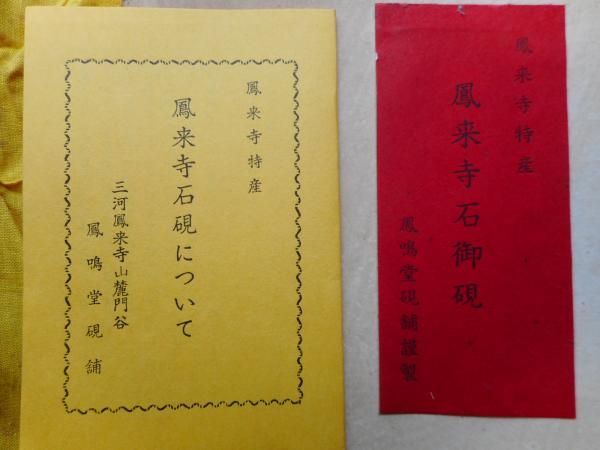 鳳来寺特産
鳳来寺石硯について
三河鳳来寺山麓門谷
鳳鳴堂硯舗
鳳来寺特産
鳳来寺石御硯
鳳鳴堂硯舗謹製